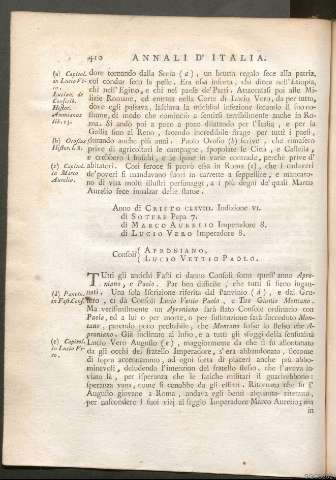 410 ANNALI D' ITALIA.
(a) Capitol.
in Lucio Ve-
ro.
Lucian. de
Conscrib.
Histor.
Ammianus
lib. 23.
(b) Orosius
Histor. l. 8.
(c) Capitol.
in Marco
Aurelio.
dove tornando dalla Soria (a), un brutto regalo fece alla patria,
col condur seco la peste. Era essa insorta, chi dice nell'Etiopia,
chi nell'Egitto, e chi nel paese de' Parti. Attaccatasi poi alle Mi-
lizie Romane, ed entrata nella Corte di Lucio Vero, da per tutto,
dove egli passava, lasciava il micidial infezione secondo il
di modo che cominciò a sentirsi sensibilmente anche in Ro-
ma. Si andò poi a poco a poco dilatando per l'Italia, e per la
Gallia sino al Reno, facendo incredibile strage per tutti i paesi,
durando anche più anni. Paolo Orosio (b) scrive, che rimasero
prive di agricoltori le campagne, spopolate le Città, e Castella,
e crebbero i boschi, e le spine in varie contrade, perchè prive d'
abitatori. Così feroce si provò essa in Roma (c), che i cadaveri
de' poveri si mandavano fuori in carrette a seppellire, e mancaro-
no di vita molti illustri personaggi, a i più degni de' quali Marco
Aurelio fece innalzar delle statue.
Anno di CRISTO CLXVIII. Indizione VI.
di SOTERE Papa 7.
di MARCO AURELIO Imperadore 8.
di LUCIO VERO Imperadore 8.
Consoli { APRONIANO,
LUCIO VETTIO PAOLO.
(d) Panvin.
in Fast. Conf.
(e) Capitol.
in Lucio Ve-
ro.
TUtti gli antichi Fasti ci danno Consoli sotto quest'anno Apro-
niano, e Paolo. Par ben difficile, che tutti si sieno ingan-
nati. Una sola Iscrizione riferita dal Panvinio (d), e da Gru-
tero, ci dà Consoli Lucio Vettio Paolo, e Tito Giunio Montano.
Ma verisimilmente un Aproniano sarà stato Consolo ordinario con
Paolo, ed a lui o per morte, o per sostituzione sarà succeduto Mon-
tano, parendo poco probabile, che Montano fosse lo stesso che A-
proniano. Già istradato al lusso, e a tutti gli sfoghi della sensualità
Lucio Vero Augusto (e), maggiormente da che si fu allontanato
da gli occhi del fratello Imperadore, s'era abbandonato, siccome
di sopra accennammo, ad ogni sorta di piaceri anche più abbo-
minevoli, deludendo l'intenzion del fratello stesso, che l'aveva in-
viato là, per isperanza che le fatiche militari il guarirebbono:
speranza vana, come si conobbe da gli effetti. Ritornato che fu l'
Augusto giovane a Roma, andava egli bensì alquanto attento,
per nascondere i suoi vizj al saggio Imperadore Marco Aurelio; ma
in